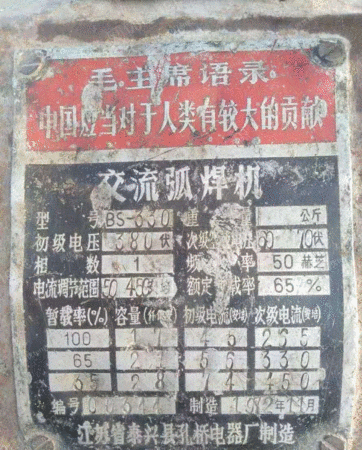 毛主席语录
中国应当对于人类有较大的贡献
交流弧焊机
型号 BS-330 重 公斤
初级电压 380伏 次级 电压 60-70伏
相数 1 频率 50 赫芝
电流调节范围 50 450 额定 载率 65%
暂载率(%) 容量 初级电流 次级电流
100 265
65 330
28 450
编号 制造 年 月
江苏省泰兴县孔桥电器厂制造